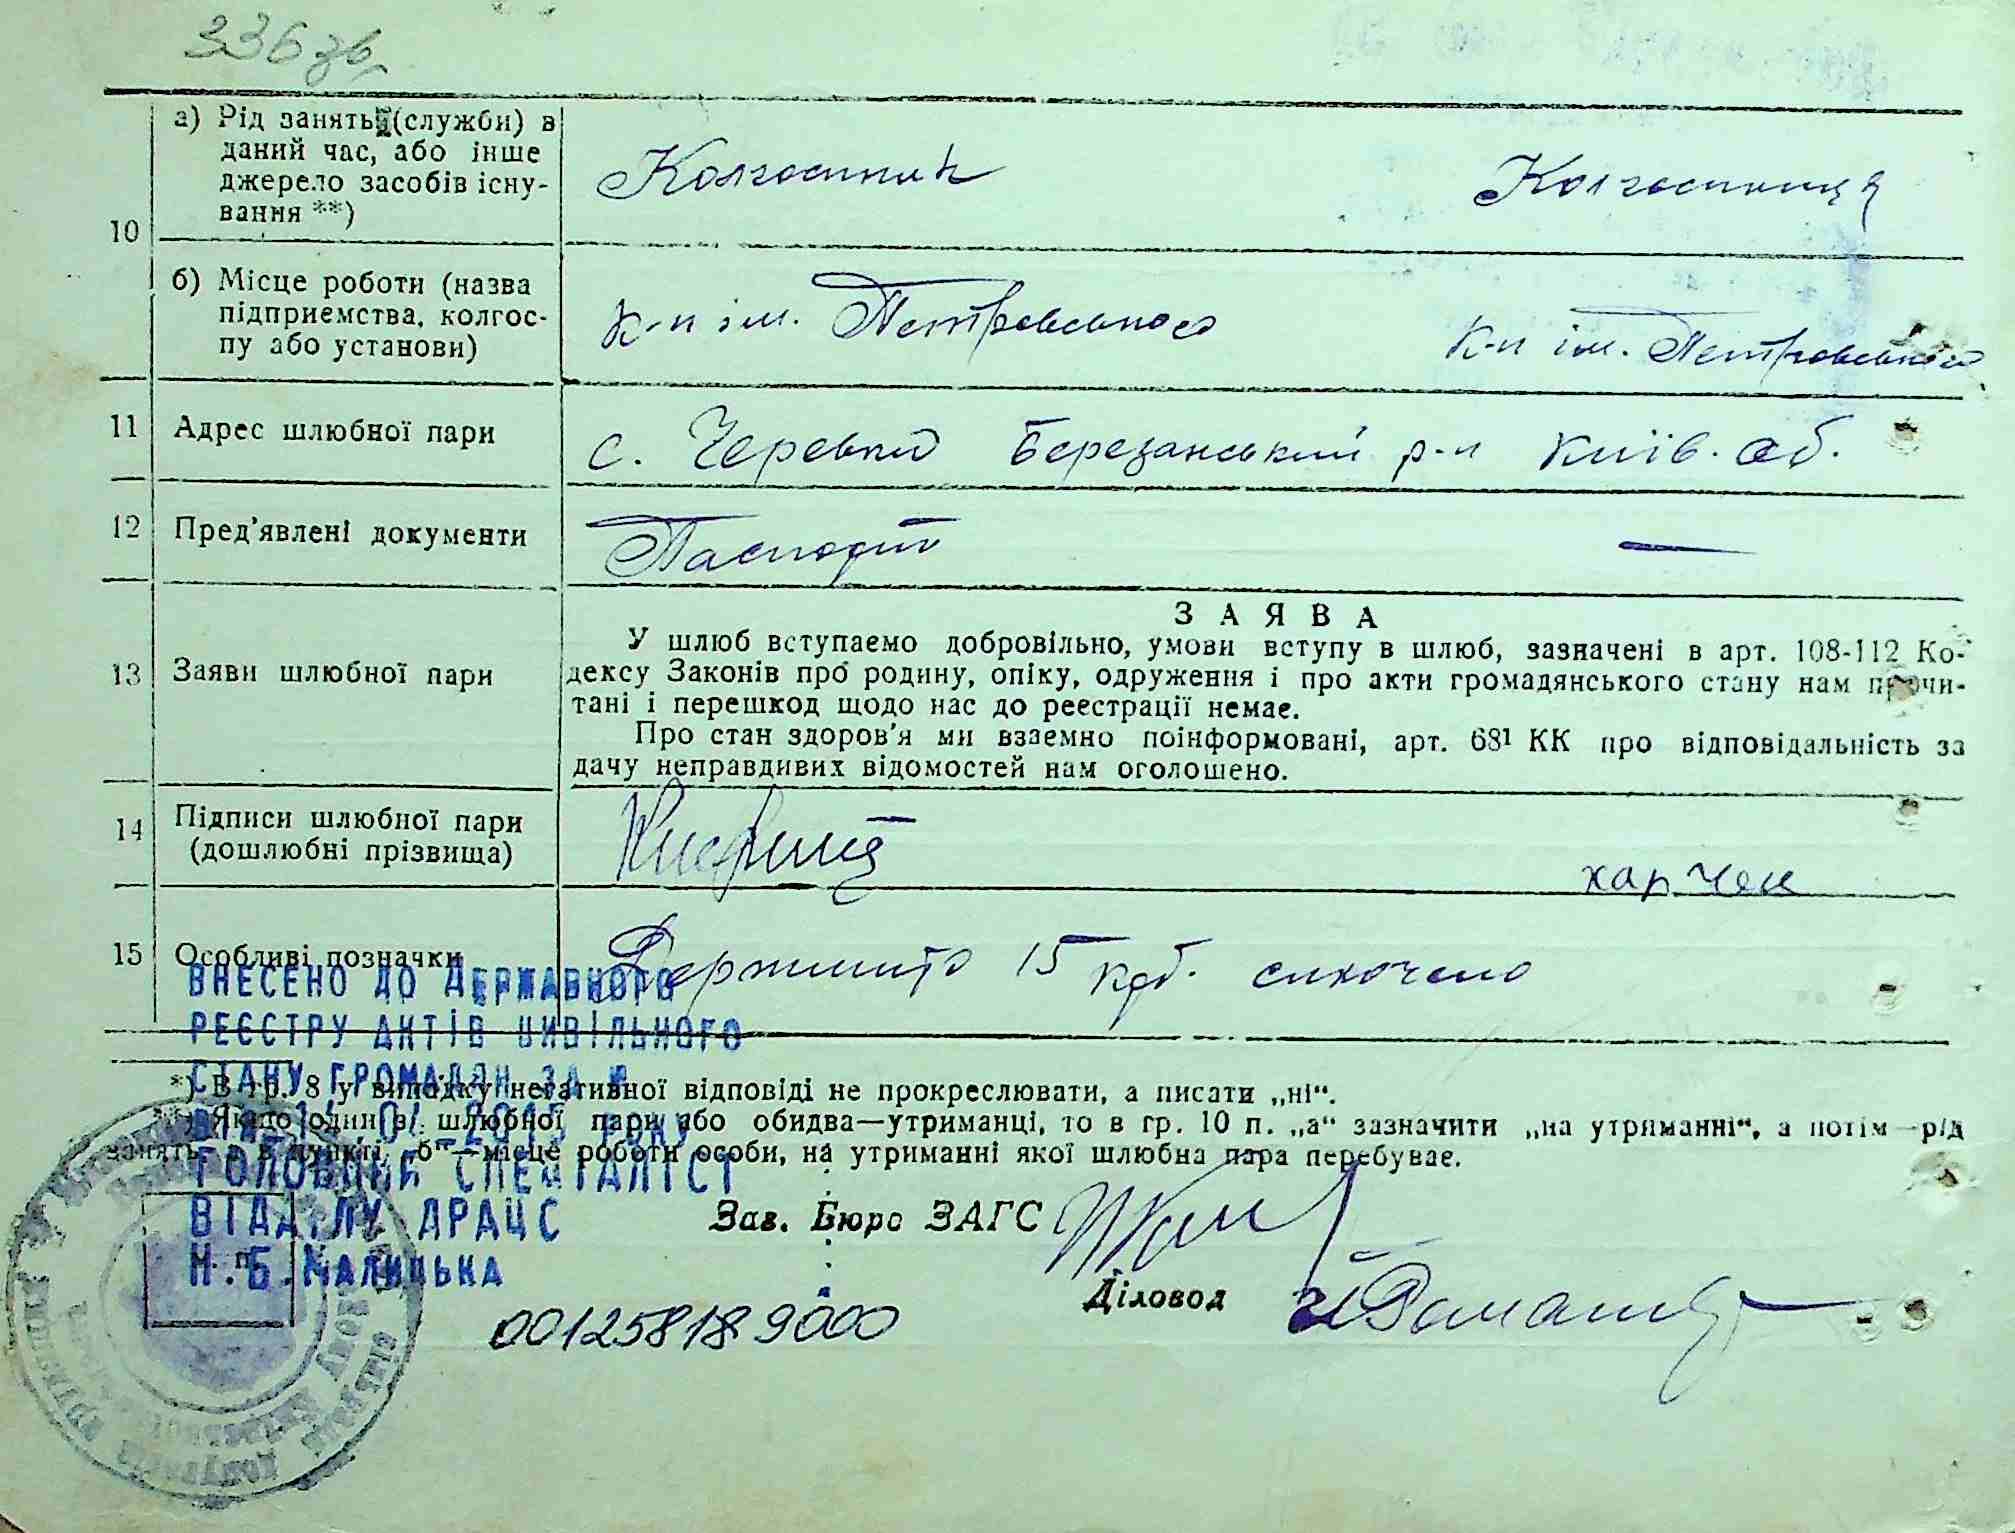 336 зв.
10
а) Рід занять (служби) в
даний час, або інше
джерело засобів існу-
вання **)
Колгоспник Колгоспниця
б) Місце роботи (назва
підприємства, колгос-
пу або установи)
к-п ім. Петровського к-п ім. Петровського
11 Адрес шлюбної пари
с. Черевки Березанський р-н Київ. об.
12 Пред'явлені документи
Паспорт —
13 Заяви шлюбної пари
ЗАЯВА
У шлюб вступаємо добровільно, умови вступу в шлюб, зазначені в арт. 108-112 Ко-
дексу Законів про родину, опіку, одруження і про акти громадянського стану нам прочи-
тані і перешкод щодо нас до реєстрації немає.
Про стан здоров'я ми взаємно поінформовані, арт. 68¹ КК про відповідальність за
дачу неправдивих відомостей нам оголошено.
14 Підписи шлюбної пари
(дошлюбні прізвища)
харчен
15 Особливі позначки
Держмито 15 крб. стягнено
ВНЕСЕНО ДО ДЕРЖАВНОГО
РЕЄСТРУ АКТІВ ЦИВІЛЬНОГО
СТАНУ ГРОМАДЯН ЗА №
РОКУ
ГОЛОВНИЙ СПЕЦІАЛІСТ
ВІДДІЛУ ДРАЦС
Н.Б.МАЛИЦЬКА
*) В гр. 8 у випадку негативної відповіді не прокреслювати, а писати „ні“.
**) Якщо один з шлюбної пари або обидва—утриманці, то в гр. 10 п. „а“ зазначити „на утриманні“, а потім—рід
занять, а в пункті „б“—місце роботи особи, на утриманні якої шлюбна пара перебуває.
Зав. Бюро ЗАГС
М. П.
Діловод
001258189000